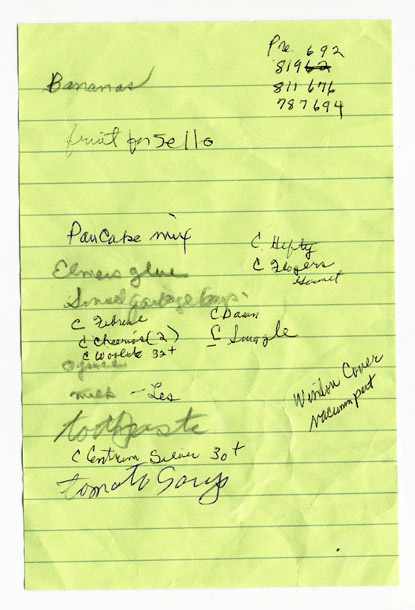 Pre. 692
81962
811 676
787694
Bananas
fruit for Jello
Pancake mix
C. Hefty
C Folgers
Gourmet
Elmers glue
Small garbage bags.
C Febreze
C Dawn
C Cheerios (2)
C Snuggle
C Woolite 32+
milk - Les
Window Cover
vacuum part
toothpaste
C Centrum Silver 30+
tomato Soup